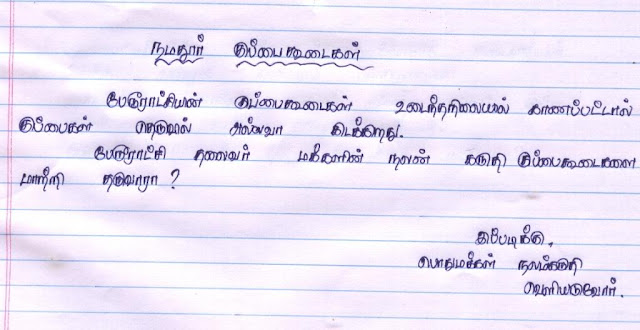 நமதூர் குப்பை கூடைகள்
பேரூராட்சியின் குப்பைகூடைகள் உடைந்தநிலையில் காணப்பட்டால்
குப்பைகள் தெருவில் அல்லவா கிடக்கிறது.
பேரூராட்சி தலைவர் மக்களின் நலன் கருதி குப்பைகூடைகளை
மாற்றி தருவாரா ?
இப்படிக்கு,
பொதுமக்கள் நலம்கருதி
வெளியிடுவோர்.